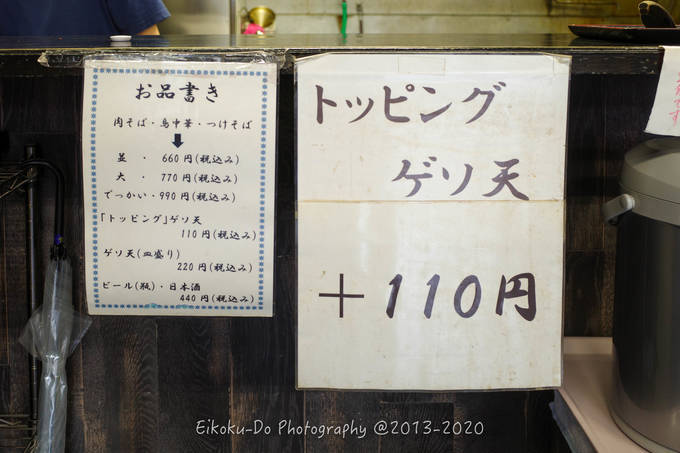 お品書き
肉そば・鳥中華・つけそば
並・660円(税込み)
大・770円(税込み)
でっかい・990円(税込み)
「トッピング」ゲソ天
110円(税込み)
ゲソ天(皿盛り)
220円(税込み)
ビール(瓶)・日本酒
440円(税込み)
トッピング
ゲソ天
+110円
Eikoku-Do Photography @2013-2020